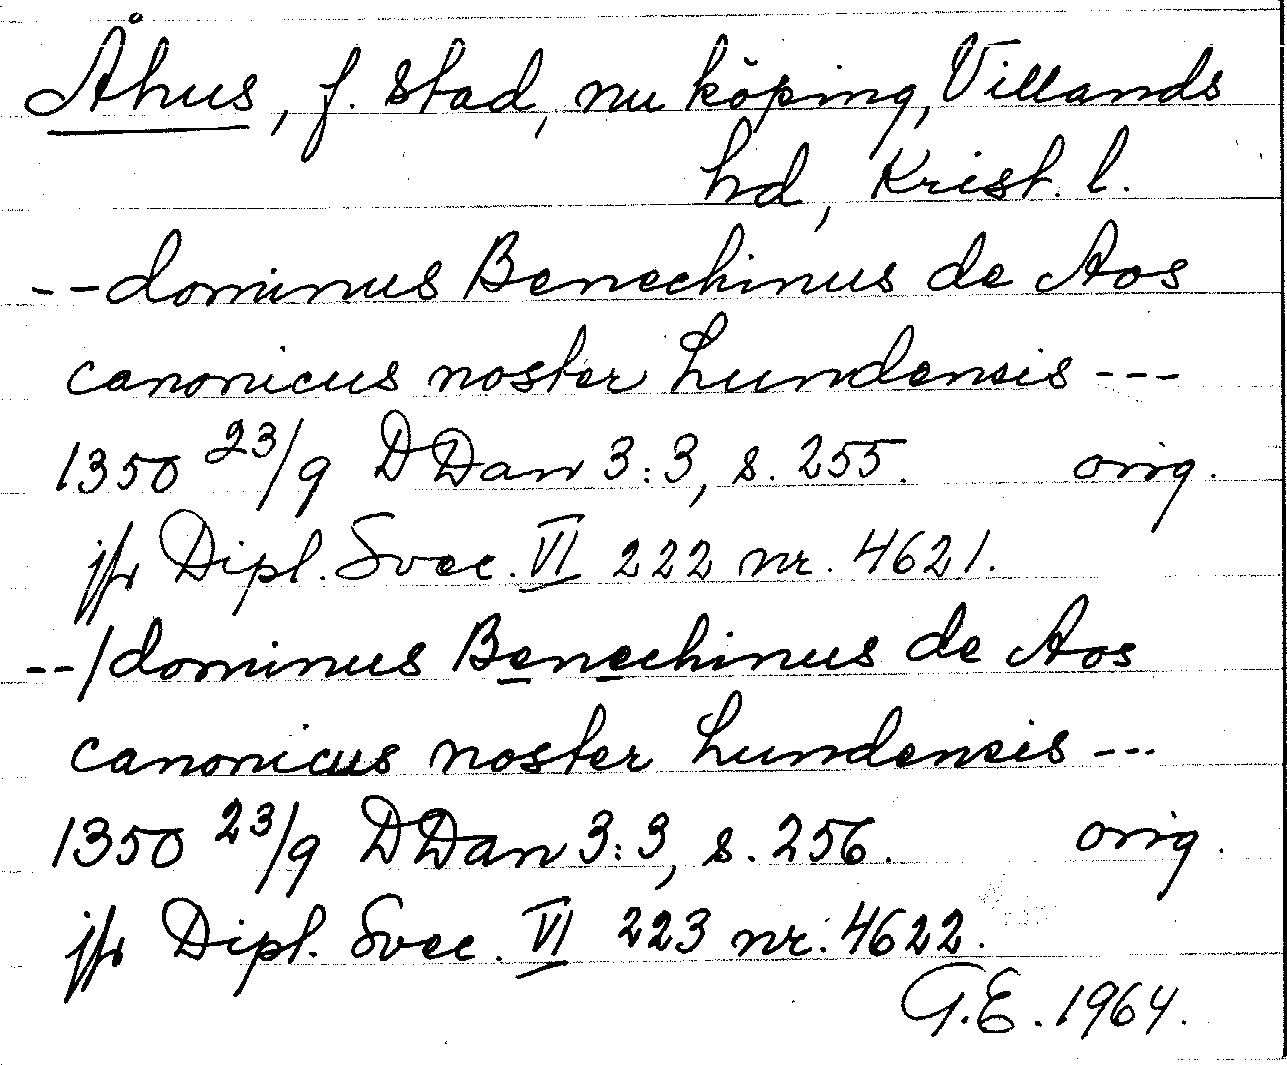 Åhus, f. stad, nu köping, Villands
hd, Krist. l.
--dominus Benechinus de Aos
canonicus noster Lundensis ---
1350 23/9 DDan 3:3, s. 255. orig.
jfr Dipl. Svec. VI 222 nr. 4621.
--/dominus Benechinus de Aos
canonicus noster Lundensis ---
1350 23/9 DDan 3:3, s. 256. orig.
jfr Dipl. Svec. VI 223 nr. 4622.
G.E. 1964.